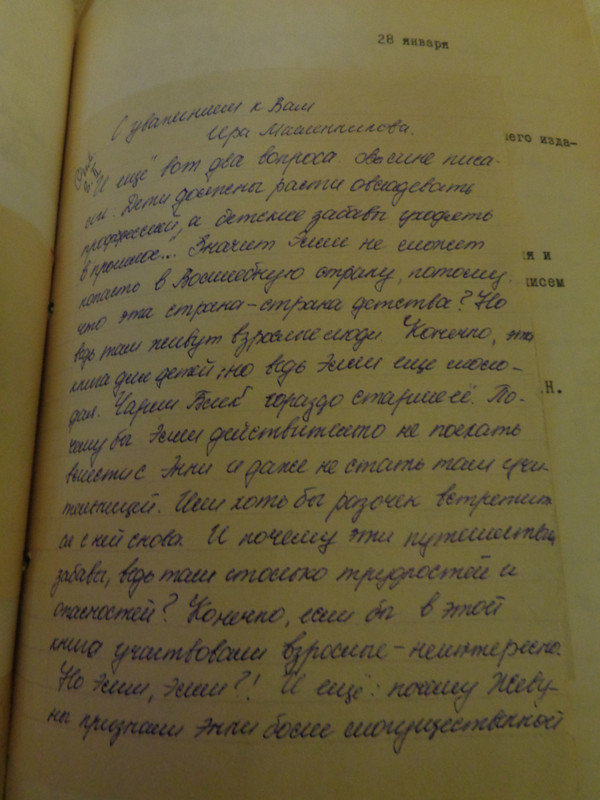 28 января
С уважением к Вам
Ира Машенникова.
его изда-
И ещё вот два вопроса. писа-
ли: Дети должны расти овладевать
профессией, а детские забавы уходят
в прошлое..." Значит Элли не сможет
я и
попасть в Волшебную страну, потому
исем
что эта страна-страна детства? Но
ведь там живут взрослые люди Конечно, это
книга для детей, но ведь Элли еще моло-
дая. Чарли Блек гораздо старше её. По-
.Н.
чему бы Элли действительно не поехать
вместе с Энни и даже не стать там учи-
тельницей. Или хоть бы разочек встретить
ся с ней снова. И почему эти путешествия
забавы, ведь там столько трудностей и
опасностей? Конечно, если бы в этой
книга участвовали взрослые - неинтересно.
Но Элли, Элли?! И ещё: почему Жеву-
ны признали Энни более могущественной